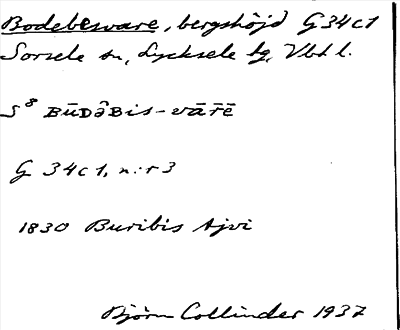 Bodebesvare, bergshöjd G34c1
Sorsele sn, Lycksele tg, Vbt l.
S⁸ BūDə̂Bis-vārē
G 34c1, n:r 3
1830 Buribis Ajvi
Björn Collinder 1937